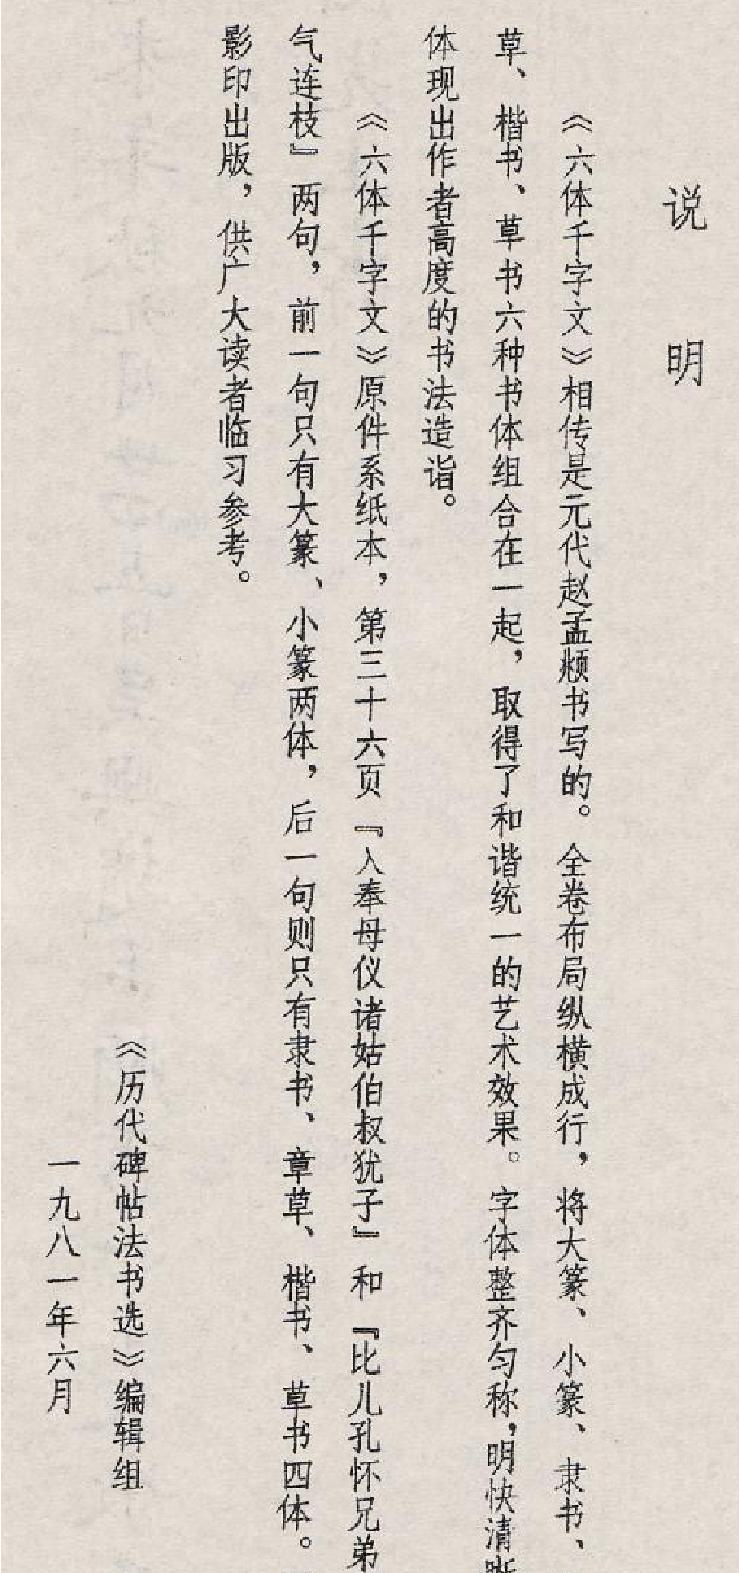 说明
《六体千字文》相传是元代赵孟𫖯书写的。全卷布局纵横成行，将大篆、小篆、隶书、
草、楷书、草书六种书体组合在一起，取得了和谐统一的艺术效果。字体整齐匀称，明快清晰
体现出作者高度的书法造诣。
《六体千字文》原件系纸本，第三十六页『入奉母仪诸姑伯叔犹子』和『比儿孔怀兄弟
气连枝』两句，前一句只有大篆、小篆两体，后一句则只有隶书、章草、楷书、草书四体。
影印出版，供广大读者临习参考。
《历代碑帖法书选》编辑组
一九八一年六月